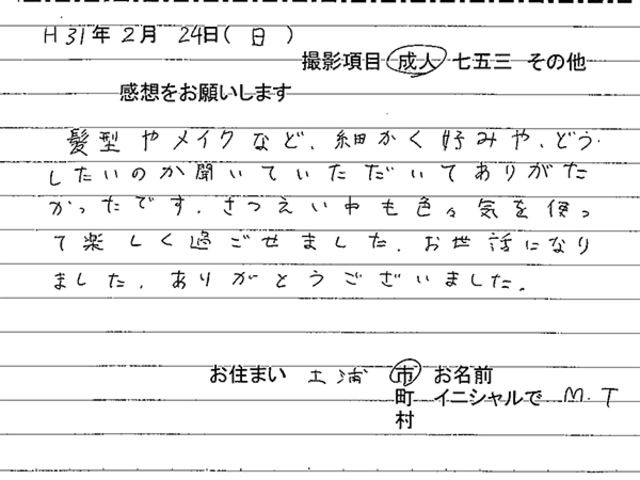 H 31年 2月 24日( 日 )
撮影項目 成人 七五三 その他
感想をお願いします
髪型やメイクなど、細かく好みや、どう
したいのか聞いていただいてありがた
かったです。さつえい中も色々気を使っ
て楽しく過ごせました。お世話になり
ました。ありがとうございました。
お住まい 土浦 市 お名前
町 イニシャルで M.T
村